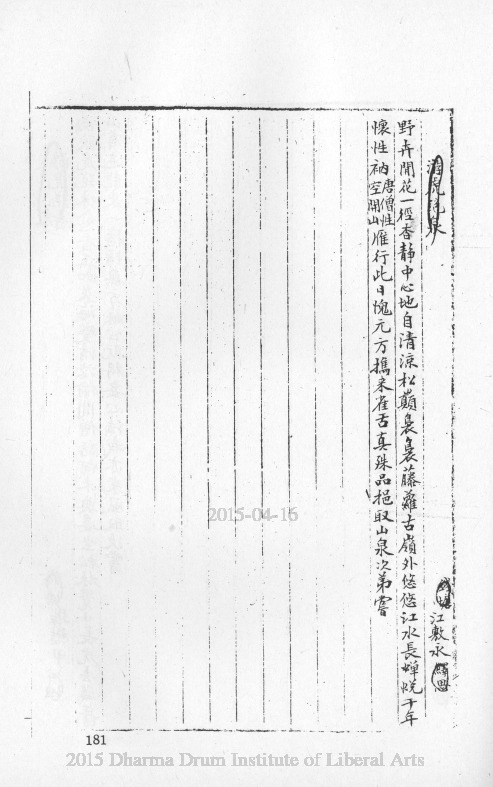 游虎跑泉 江敷永
野卉閒花一徑香靜中心地自清涼松巔裊裊藤蘿古嶺外悠悠江水長蟬悦千年
懷性衲唐僧性空開山雁行此日愧元方攜來雀舌真珠品挹取山泉次弟嘗
2015-04-16
181
2015 Dharma Drum Institute of Liberal Arts